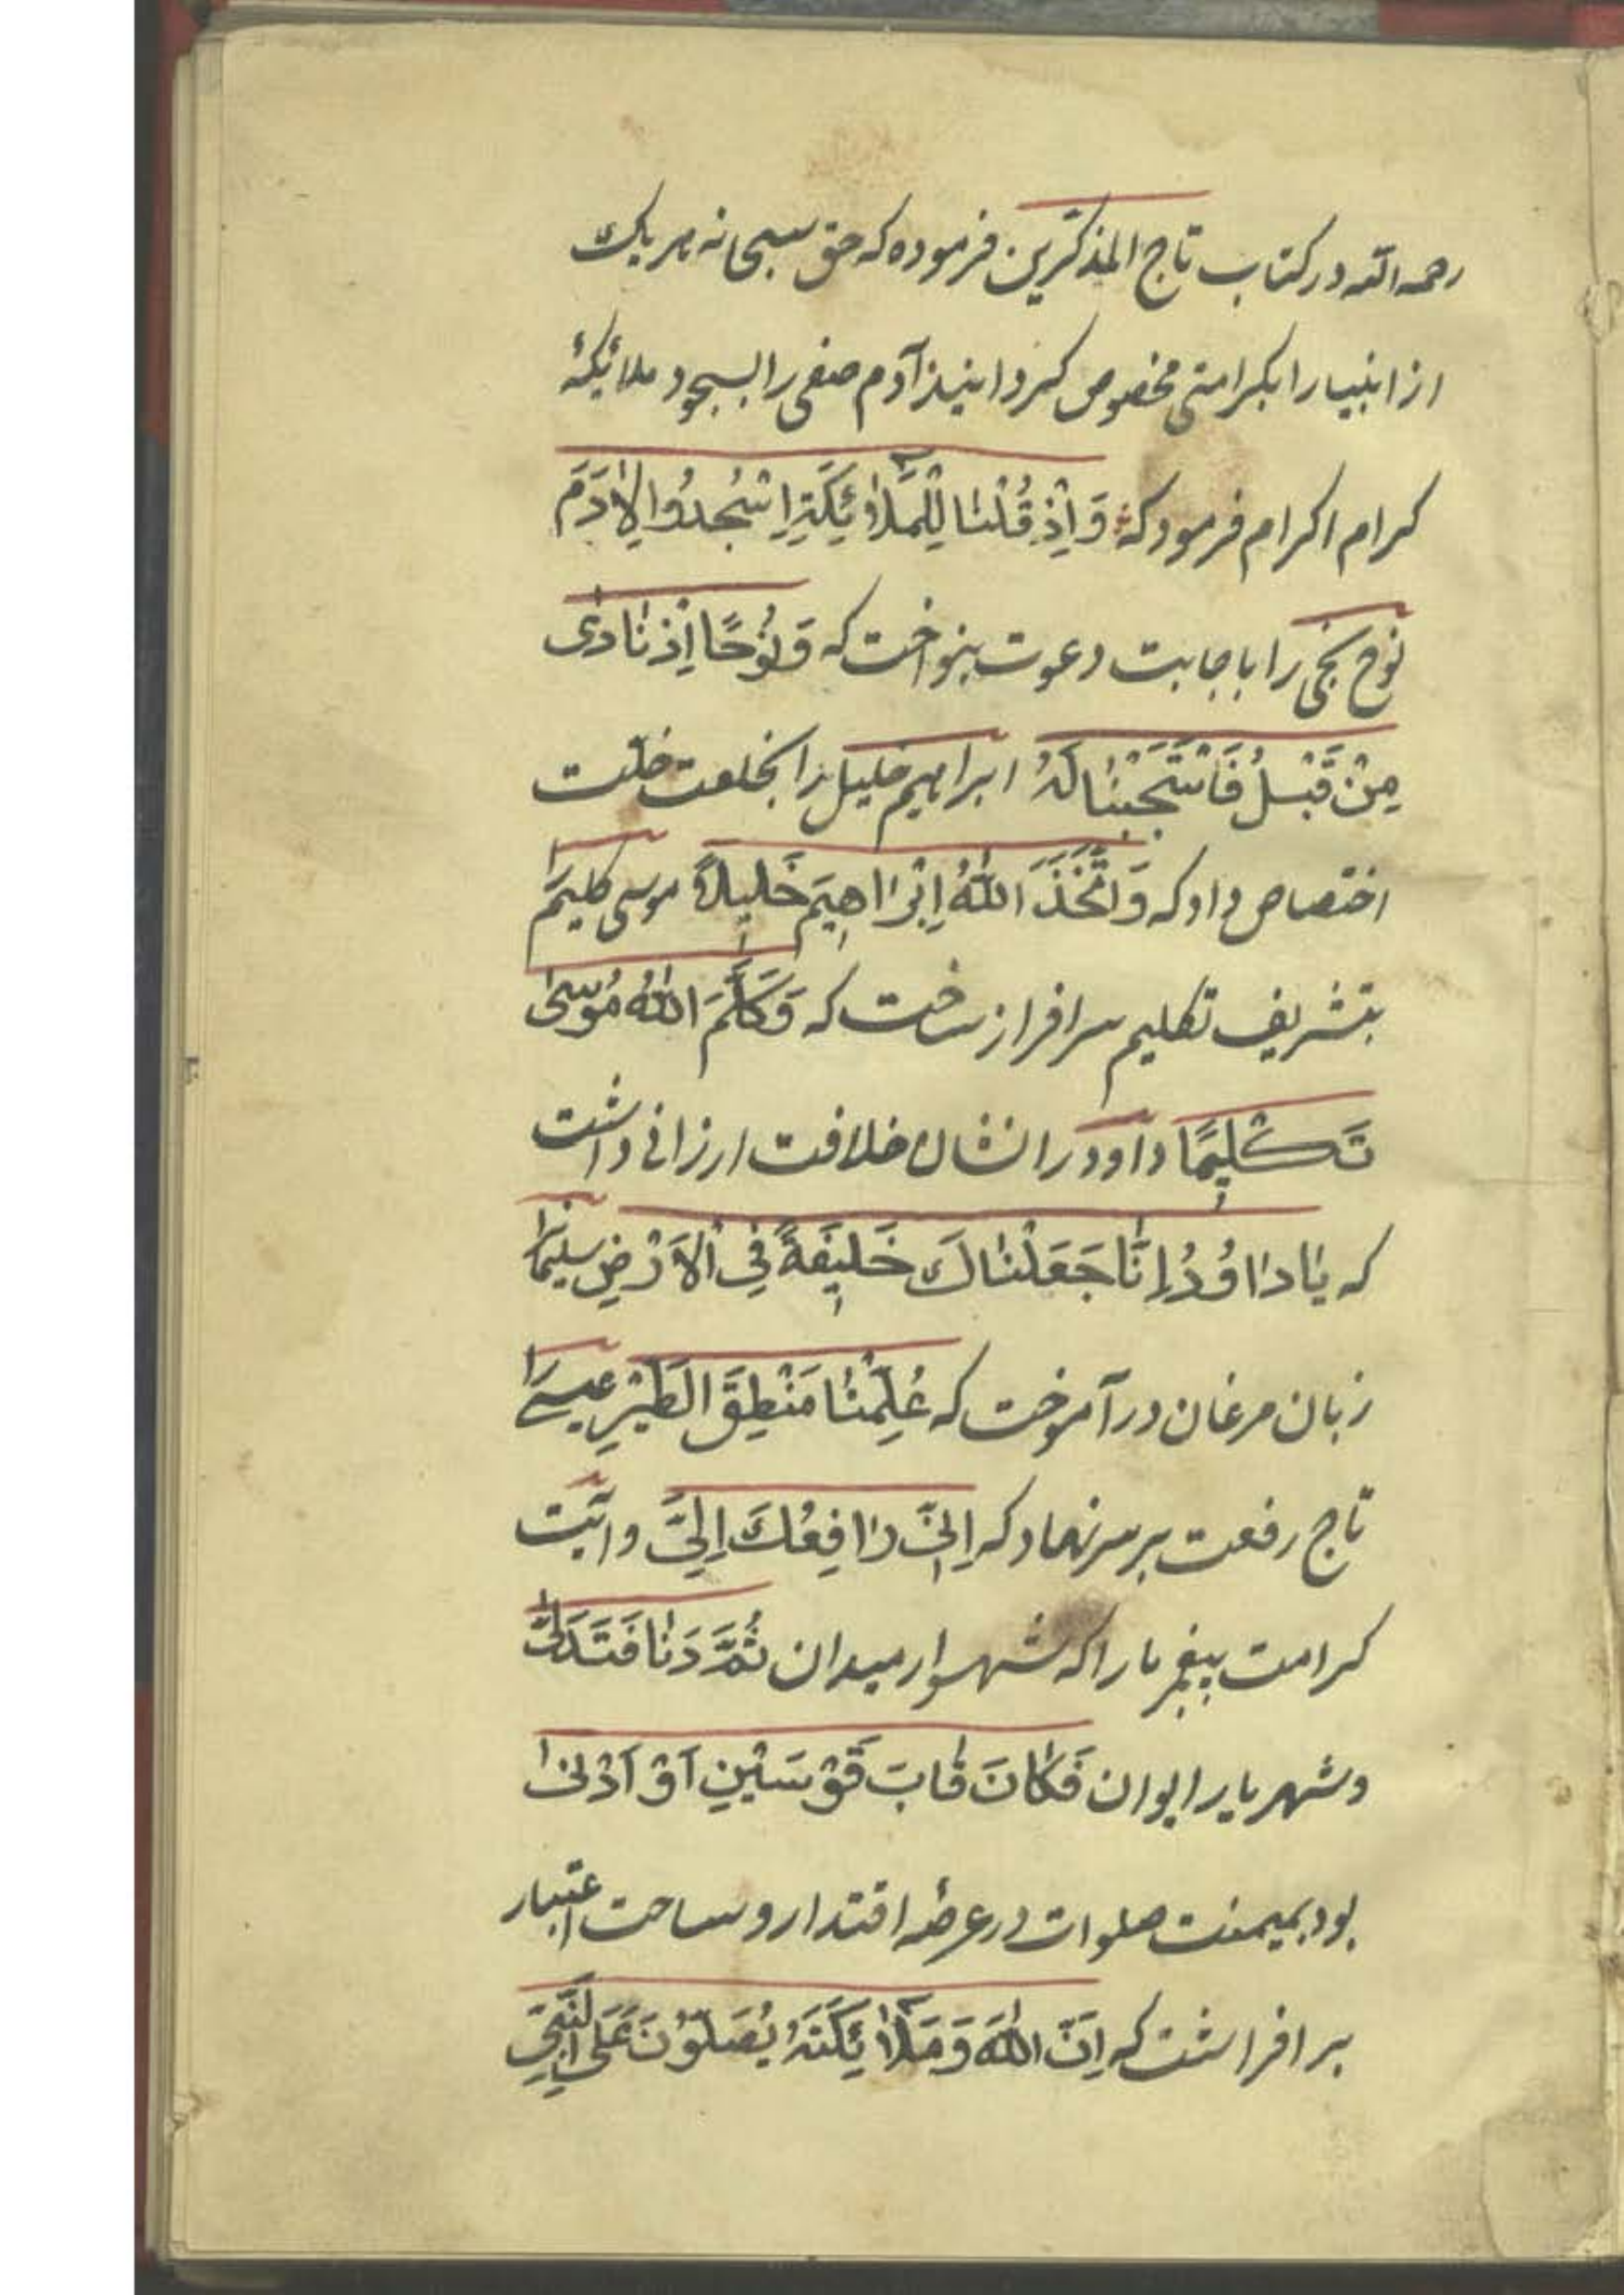 رحمه الله در کتاب تاج المذکّرین فرموده که حق سبحانه هر یک
از انبیا را بکرامتی مخصوص کردانید آدم صفی را بسجود ملائکهٔ
کرام اکرام فرمود که وَاِذْ قُلْنٰا لِلْمَلٰٓائِکَةِ اسْجُدُوا لِاٰدَمَ
نوح نجی را باجابت دعوت بنواخت که وَنُوحًا اِذْ نٰادٰی
مِنْ قَبْلُ فَاسْتَجَبْنٰا لَهُ ابراهیم خلیل را بخلعت خلّت
اختصاص داد که وَاتَّخَذَ اللّٰهُ اِبْرٰاهِیمَ خَلیلًا موسی کلیم را
بتشریف تکلیم سرافراز ساخت که وَکَلَّمَ اللّٰهُ مُوسٰی
تَکْلیمًا داود را نشان خلافت ارزانی داشت
که یٰا دٰاوُدُ اِنّٰا جَعَلْنٰاکَ خَلیفَةً فِی الْاَرْضِ سلیمان را
زبان مرغان در آموخت که عُلِّمْنٰا مَنْطِقَ الطَّیْرِ عیسی را
تاج رفعت بر سر نهاد که اِنّی رٰافِعُکَ اِلَیَّ و رایت
کرامت پیغمبر ما را که شهسوار میدان ثُمَّ دَنٰا فَتَدَلّٰی
و شهریار ایوان فَکٰانَ قٰابَ قَوْسَیْنِ اَوْ اَدْنٰی
بود بمیمنت صلوات در عرصهٔ اقتدار و ساحت اعتبار
بر افراشت که اِنَّ اللّٰهَ وَمَلٰٓائِکَتَهُ یُصَلُّونَ عَلَی النَّبِیِّ